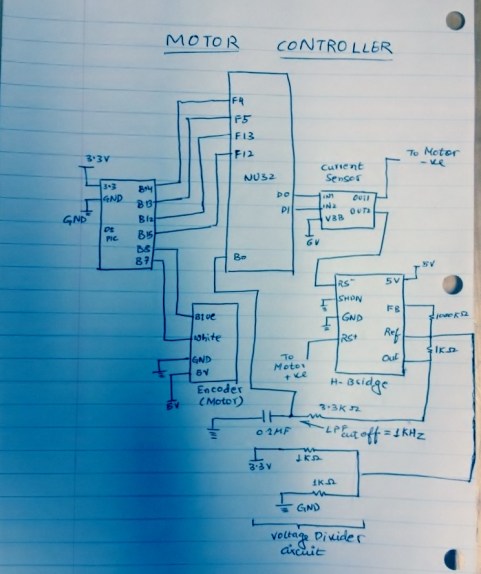 MOTOR CONTROLLER
F4
F5
F13
F12
NU32
D0
D1
B0
3.3V
3.3
GND
GND
B14
B13
B10
B15
B8
B7
Current
Sensor
IN1
IN2
VBB
OUT1
OUT2
6V
To Motor
-ve
RS-
SHDN
GND
RS+
5V
FB
Ref
Out
5V
1000KΩ
1KΩ
H-Bridge
To
Motor
+ve
Blue
White
GND
5V
5V
Encoder
(Motor)
3.3KΩ
LPF
cutoff = 1KHz
3.3V
1KΩ
1KΩ
GND
Voltage Divider
circuit